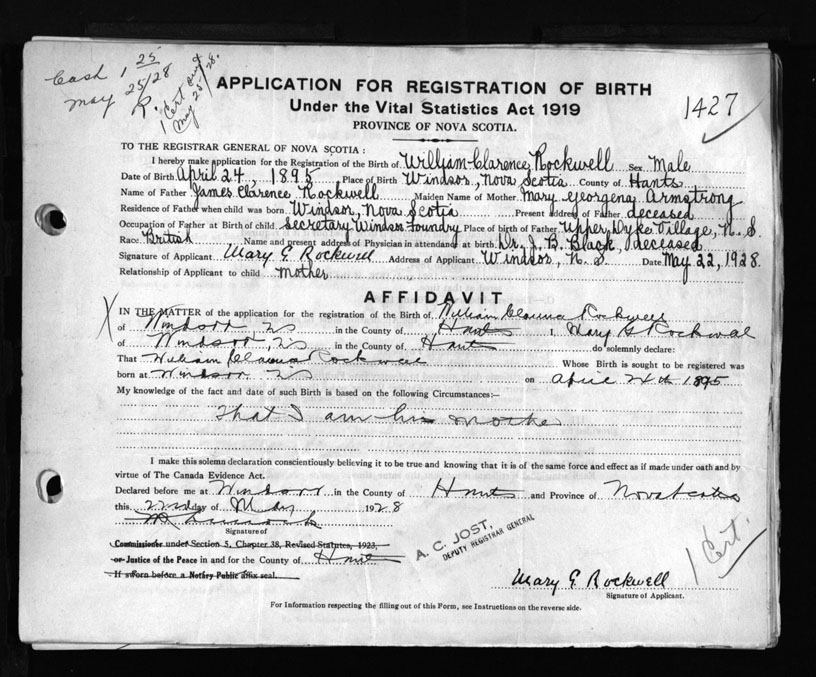 Cash 1 25
May 25/28
R.
1 Cert
May 25/28.
APPLICATION FOR REGISTRATION OF BIRTH
Under the Vital Statistics Act 1919
PROVINCE OF NOVA SCOTIA.
1427
TO THE REGISTRAR GENERAL OF NOVA SCOTIA:
I hereby make application for the Registration of the Birth of William Clarence Rockwell Sex Male
Date of Birth April 24, 1895 Place of Birth Windsor, Nova Scotia County of Hants
Name of Father James Clarence Rockwell Maiden Name of Mother Mary Georgena Armstrong
Residence of Father when child was born Windsor, Nova Scotia Present address of Father deceased
Occupation of Father at Birth of child Secretary Windsor Foundry Place of birth of Father Upper Dyke Village, N. S.
Race British Name and present address of Physician in attendance at birth Dr. J. B. Black, deceased
Signature of Applicant Mary G Rockwell Address of Applicant Windsor, N. S. Date May 22, 1928.
Relationship of Applicant to child mother
AFFIDAVIT
IN THE MATTER of the application for the registration of the Birth of William Clarence Rockwell
of Windsor NS in the County of Hants I, Mary G Rockwell
of Windsor, NS in the County of Hants do solemnly declare:
That William Clarence Rockwell Whose Birth is sought to be registered was
born at Windsor NS on April 24th 1895
My knowledge of the fact and date of such Birth is based on the following Circumstances:—
That I am his mother
I make this solemn declaration conscientiously believing it to be true and knowing that it is of the same force and effect as if made under oath and by
virtue of The Canada Evidence Act.
Declared before me at Windsor in the County of Hants and Province of Nova Scotia
this 22nd day of May 1928
Signature of
Commissioner under Section 5, Chapter 38, Revised Statutes, 1923,
or Justice of the Peace in and for the County of Hants
If sworn before a Notary Public affix seal.
A. C. JOST,
DEPUTY REGISTRAR GENERAL
1 Cert.
Mary G Rockwell
Signature of Applicant.
For Information respecting the filling out of this Form, see Instructions on the reverse side.